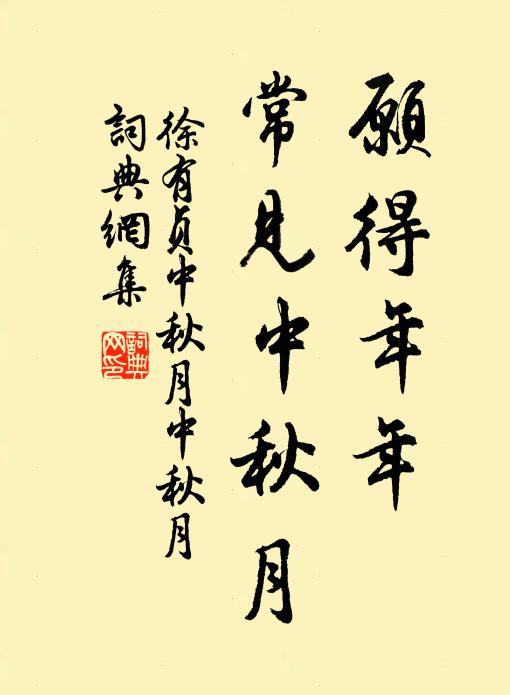 願得年年
常見中秋月
徐有貞中秋月中秋月
詞典網集
詞典
网印